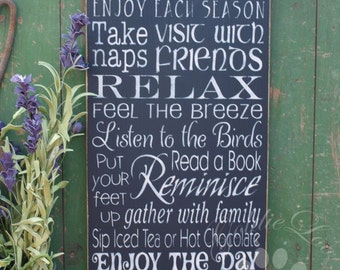 ENJOY EACH SEASON
Take naps
VISIT WITH FRIENDS
RELAX
FEEL THE BREEZE
Listen to the Birds
PUT YOUR FEET UP
Read a Book
Reminisce
gather with family
Sip Iced Tea or Hot Chocolate
ENJOY THE DAY